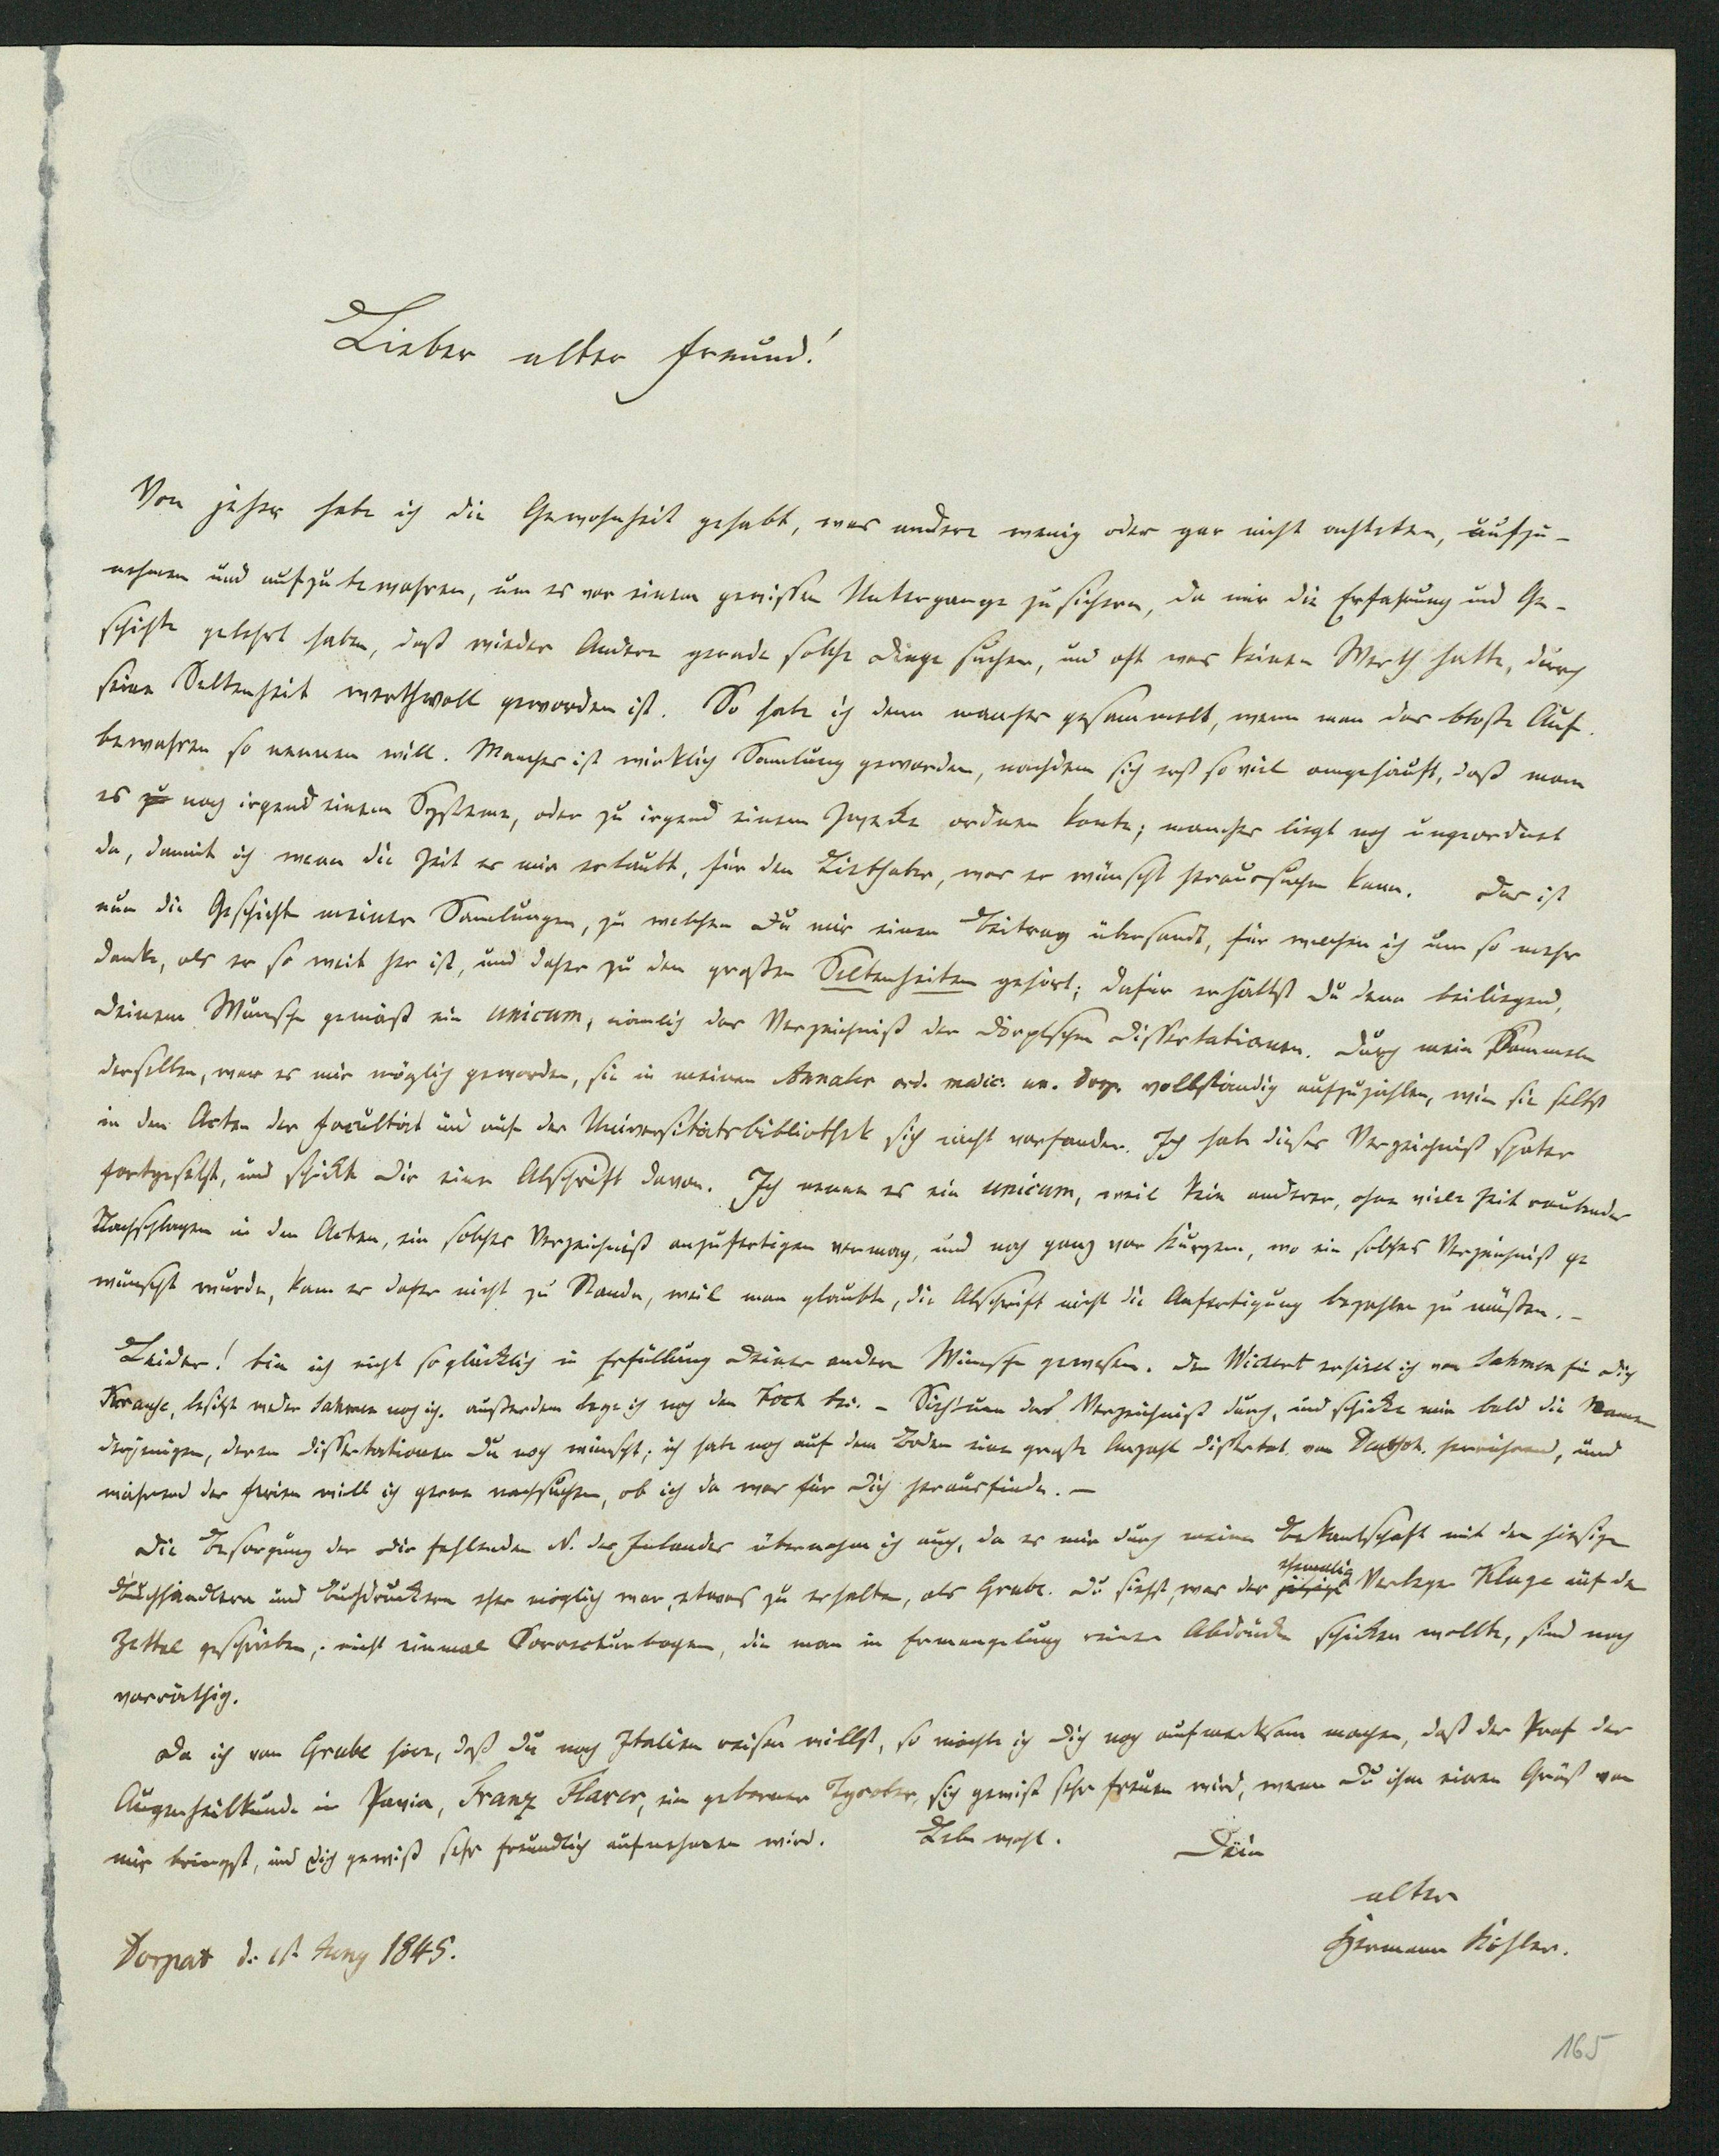 Lieber alter Freund!
Von jeher habe ich die Gewohnheit gehabt, was andere wenig oder gar nicht achteten, aufzu-
nehmen und aufzubewahren, um es vor einem gewissen Untergange zu sichern, da mir die Erfahrung und Ge-
schichte gelehrt haben, daß wieder Andere gerade solche Dinge suchen, und oft was keinen Werth hatte, durch
seine Seltenheit werthvoll geworden ist. So habe ich denn manches gesammelt, wenn man das bloße Auf-
bewahren so nennen will. Manches ist wirklich Samlung geworden, nachdem sich erst so viel angehäuft, daß man
es zu nach irgend einem Systeme, oder zu irgend einem Zwecke ordnen konte; manches liegt noch ungeordnet
da, damit ich wenn die Zeit es mir erlaubt, für den Liebhaber, was er wünscht heraussuchen kann. Das ist
nun die Geschichte meiner Samlungen, zu welchen Du mir einen Beitrag übersandt, für welchen ich um so mehr
danke, als er so weit her ist, und daher zu den großen Seltenheiten gehört; dafür erhältst Du denn beiliegend,
Deinem Wunsche gemäß ein unicum, nämlich das Verzeichniß der Dörptschen Dissertationen. Durch mein Sammeln
derselben, war es mir möglich geworden, sie in meinen Annales ord. medic. un. Dorp. vollständig aufzuzählen, wie sie selbst
in den Acten der Facultät und auf der Universitätsbibliothek sich nicht vorfanden. Ich habe dieses Verzeichniß später
fortgesetzt, und schicke Dir eine Abschrift davon. Ich nenne es ein unicum, weil kein anderer, ohne viele Zeit raubendes
Nachschlagen in den Acten, ein solches Verzeichniß anzufertigen vermag, und noch ganz vor Kurzem, wo ein solches Verzeichniß ge
wünscht wurde, kam es daher nicht zu Stande, weil man glaubte, die Abschrift nicht die Anfertigung bezahlen zu müßen. -
Leider! bin ich nicht so glücklich in Erfüllung Deiner andern Wünsche gewesen. Den Wichert erhielt ich von Sahmen für Dich
Krause, besitzt weder Sahmen noch ich. außerdem lege ich noch den Koch bei. - Sieh nun das Verzeichniß durch, und schicke mir bald die Namen
derjenigen, deren Dissertationen Du noch wünschst; ich habe noch auf dem Boden eine große Anzahl Dissertat. von herrührend, und
während der Ferien will ich gerne nachsuchen, ob ich da was für Dich herausfinde. -
Die Besorgung der Dir fehlenden N. des Inlandes übernahm ich auch, da es mir durch meine Bekantschaft mit den hiesigen
Buchhändlern und Buchdruckern eher möglich war, etwas zu erhalten, als Grube. Du siehst, was der ehemalig Verleger Kluge auf den
Zettel geschrieben; nicht einmal Correcturbogen, die man in Ermangelung reiner Abdrücke schicken wollte, sind noch
vorräthig.
Da ich von Grube höre, daß Du nach Italien reisen willst, so möchte ich Dich noch aufmerksam machen, daß der Prof der
Augenheilkunde in Pavia, Franz Flarer, ein geborner Tyroler, sich gewiß sehr freuen wird, wenn Du ihm einen Gruß von
mir bringst, und Dich gewiß sehr freundlich aufnehmen wird. Lebe wohl. Dein
alter
Hermann Köhler.
Dorpat d. Juny 1845.
165